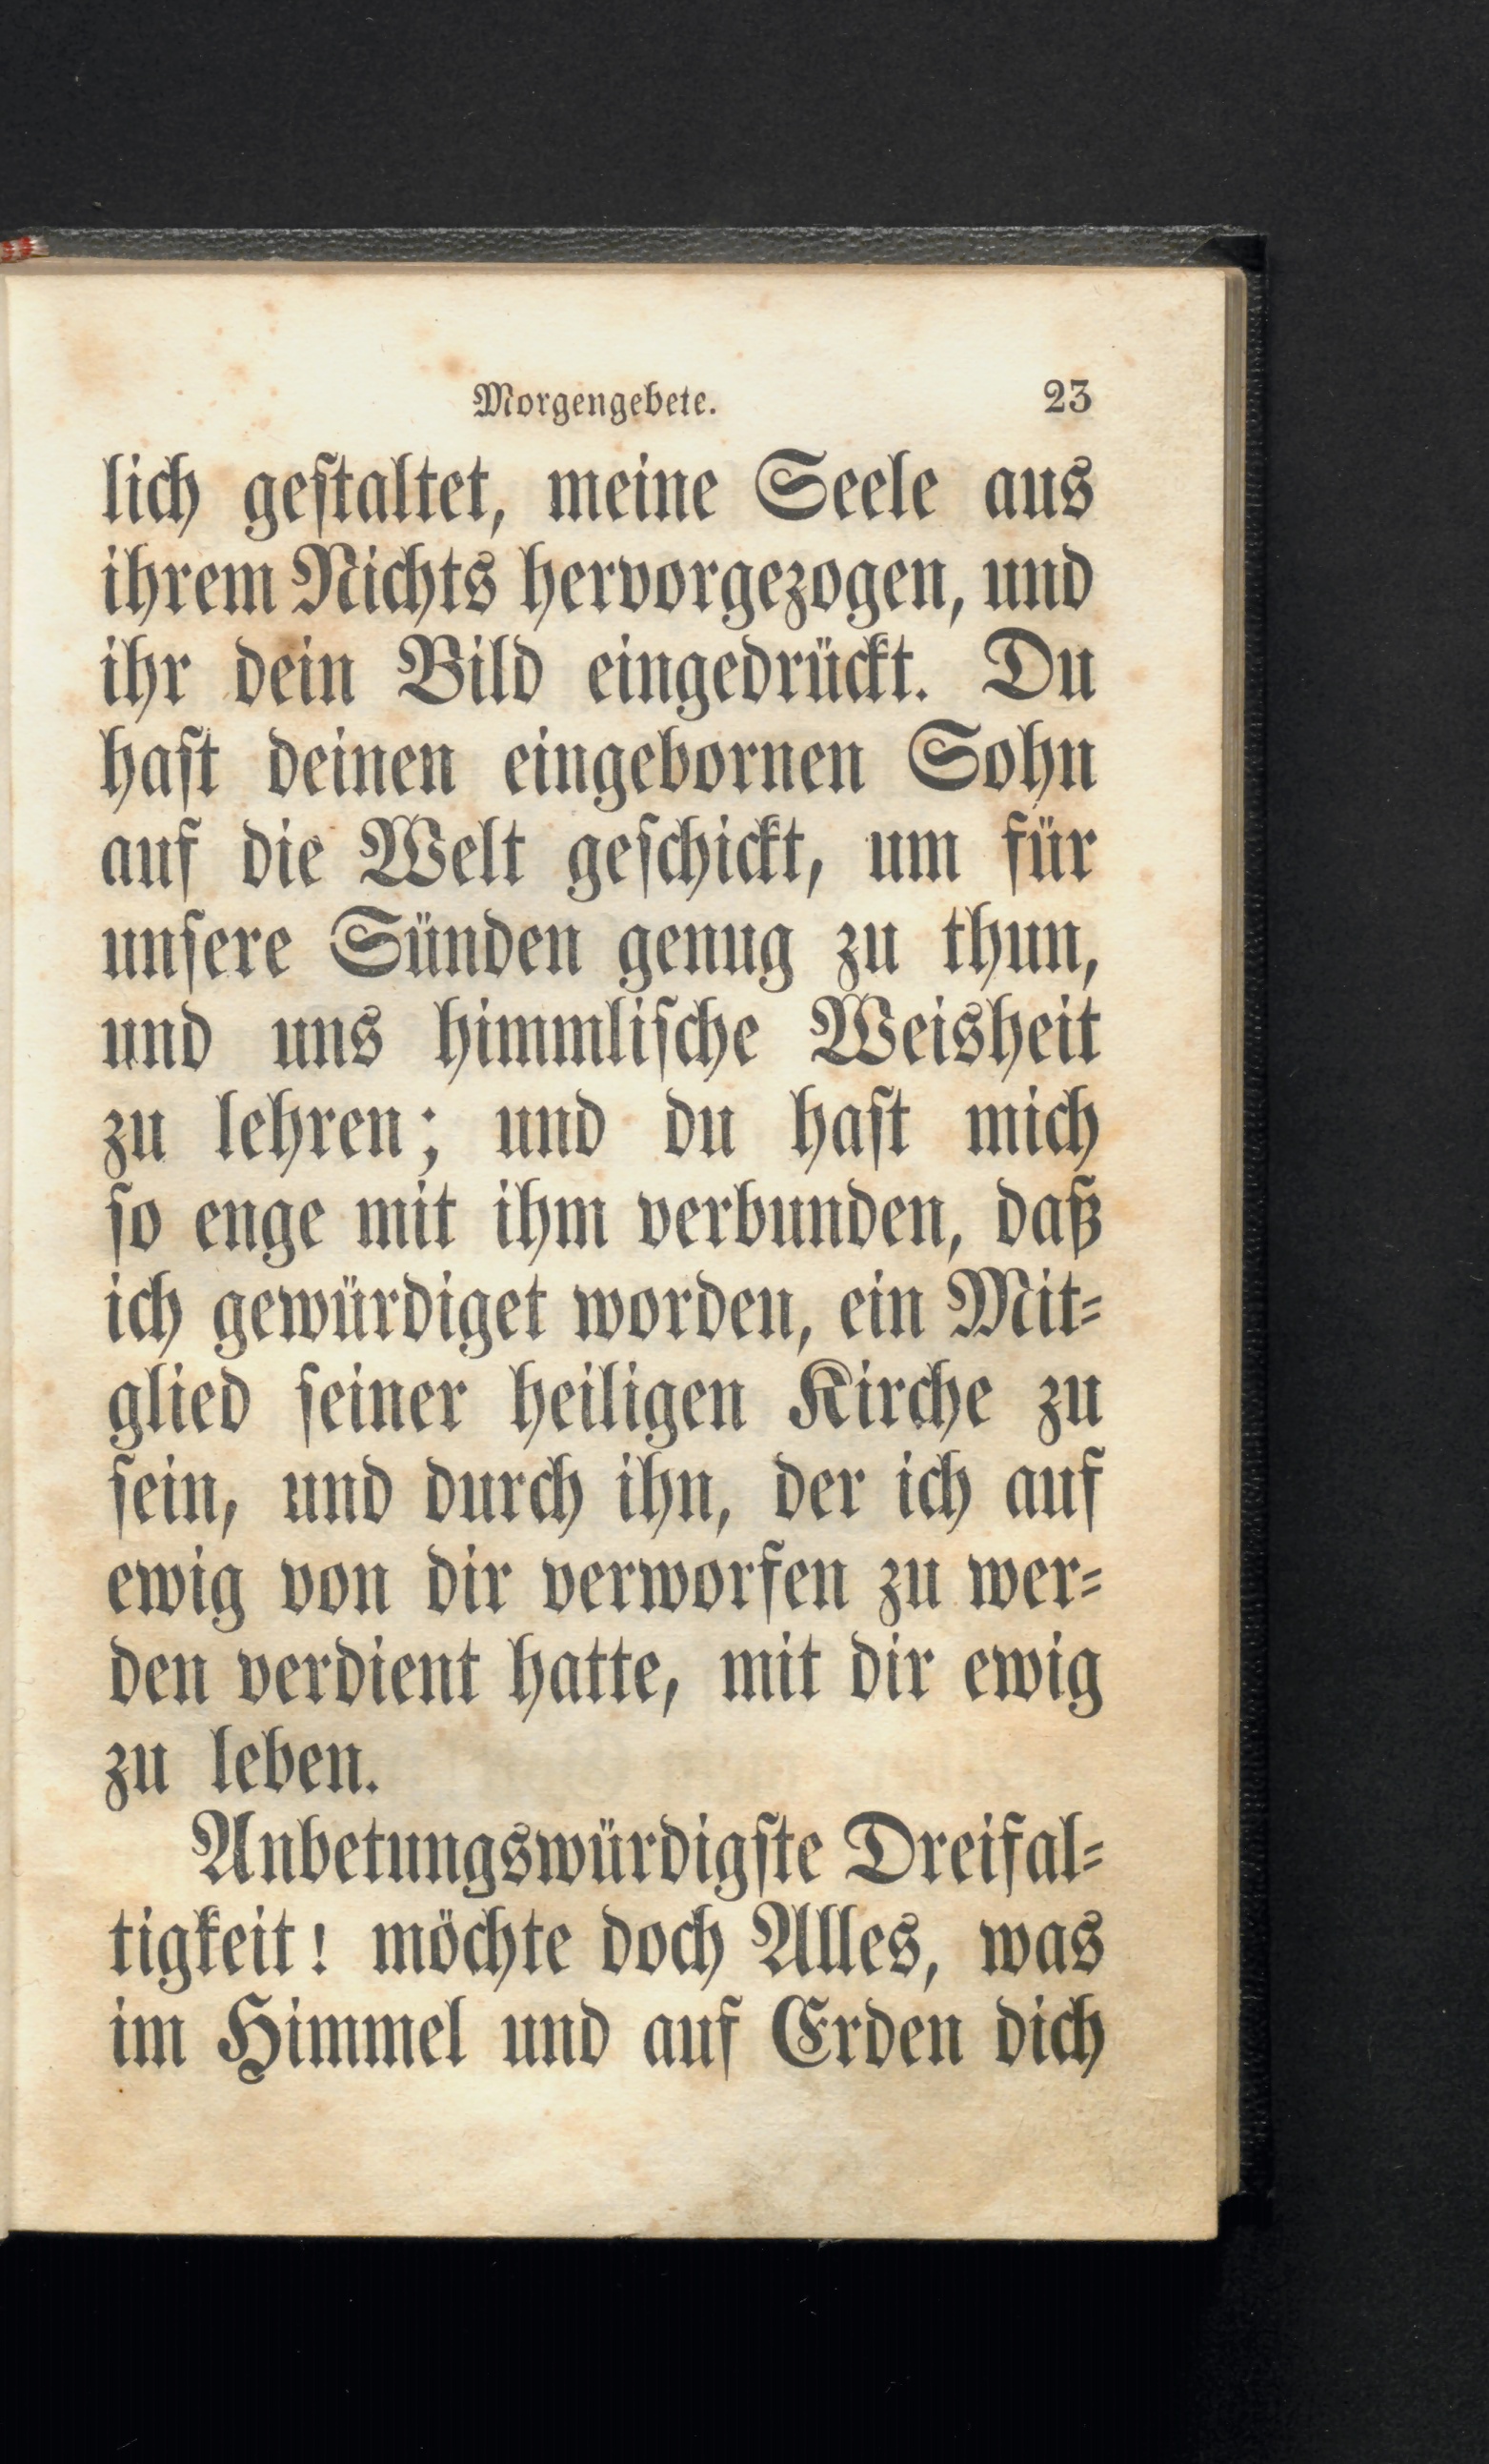 Morgengebete. 23
lich geſtaltet, meine Seele aus
ihrem Nichts hervorgezogen, und
ihr dein Bild eingedrückt. Du
haſt deinen eingebornen Sohn
auf die Welt geſchickt, um für
unſere Sünden genug zu thun,
und uns himmliſche Weisheit
zu lehren; und du haſt mich
ſo enge mit ihm verbunden, daß
ich gewürdiget worden, ein Mit⸗
glied ſeiner heiligen Kirche zu
ſein, und durch ihn, der ich auf
ewig von dir verworfen zu wer⸗
den verdient hatte, mit dir ewig
zu leben.
Anbetungswürdigſte Dreifal⸗
tigkeit! möchte doch Alles, was
im Himmel und auf Erden dich